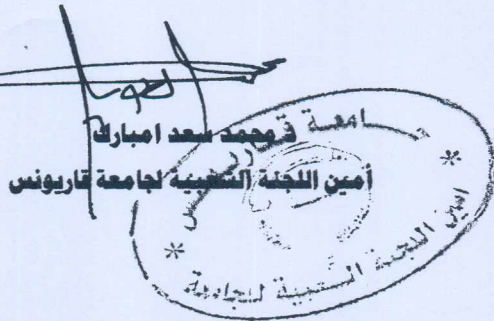 محمد سعد امبارك
أمين اللجنة الشعبية لجامعة قاريونس
جامعة قاريونس
أمين اللجنة الشعبية للجامعة